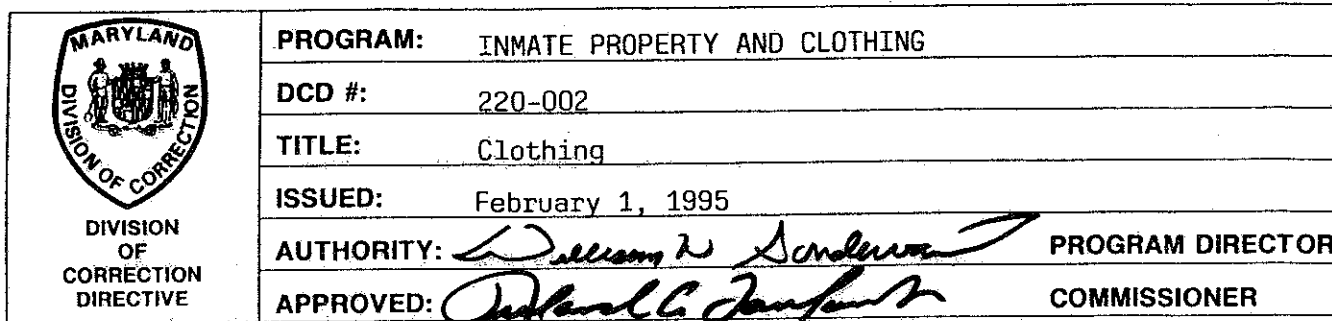 MARYLAND
DIVISION OF CORRECTION
DIVISION
OF
CORRECTION
DIRECTIVE
PROGRAM: INMATE PROPERTY AND CLOTHING
DCD #: 220-002
TITLE: Clothing
ISSUED: February 1, 1995
AUTHORITY: William PROGRAM DIRECTOR
APPROVED: COMMISSIONER